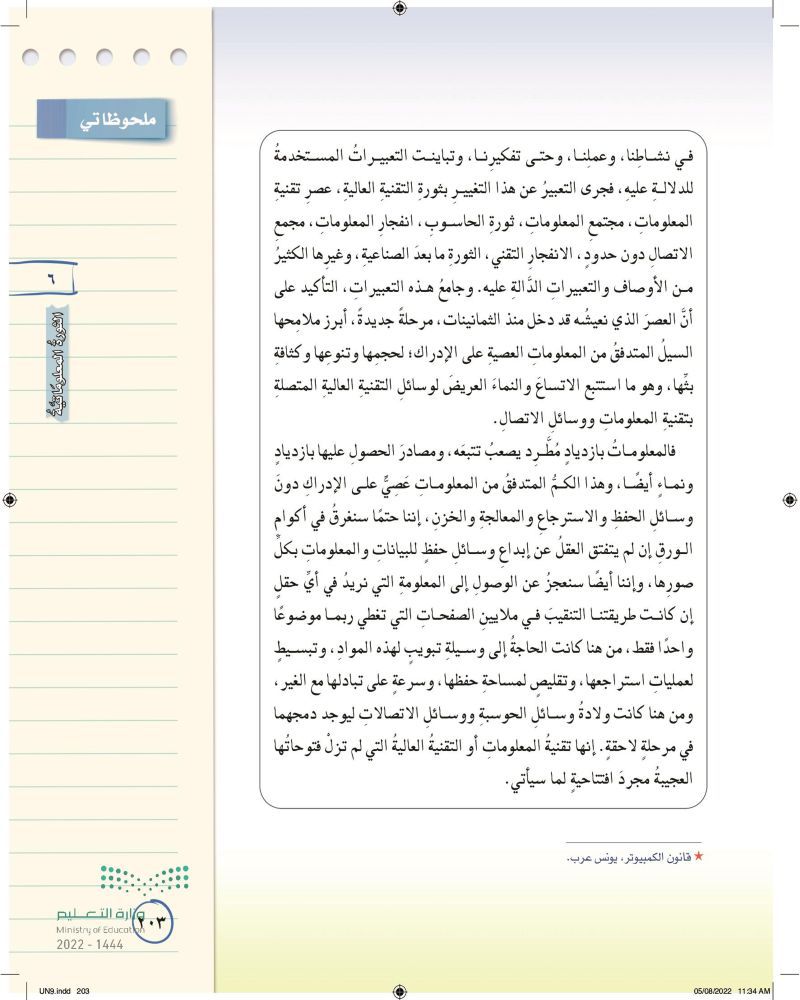 في نشاطِنا، وعملِنا، وحتى تفكيرِنا، وتباينت التعبيراتُ المستخدمةُ
للدلالةِ عليهِ، فجرى التعبيرُ عن هذا التغييرِ بثورةِ التقنيةِ العاليةِ، عصرِ تقنيةِ
المعلوماتِ، مجتمعِ المعلوماتِ، ثورةِ الحاسوبِ، انفجارِ المعلوماتِ، مجمعِ
الاتصالِ دون حدودٍ، الانفجارِ التقني، الثورةِ ما بعدَ الصناعيةِ، وغيرِها الكثيرُ
من الأوصافِ والتعبيراتِ الدَّالةِ عليه. وجامعُ هذه التعبيراتِ، التأكيد على
أنَّ العصرَ الذي نعيشُه قد دخل منذ الثمانيناتِ، مرحلةً جديدةً، أبرز ملامحِها
السيلُ المتدفقُ من المعلوماتِ العصيةِ على الإدراك؛ لحجمِها وتنوعِها وكثافةِ
بثِّها، وهو ما استتبع الاتساعَ والنماءَ العريضَ لوسائلِ التقنيةِ العاليةِ المتصلةِ
بتقنيةِ المعلوماتِ ووسائلِ الاتصالِ.
فالمعلوماتُ بازديادٍ مُطَّردٍ يصعبُ تتبعَه، ومصادرَ الحصولِ عليها بازديادٍ
ونماءٍ أيضًا، وهذا الكمُّ المتدفقُ من المعلوماتِ عَصِيٌّ على الإدراكِ دونَ
وسائلِ الحفظِ والاسترجاعِ والمعالجةِ والخزنِ، إننا حتمًا سنغرقُ في أكوامِ
الورقِ إن لم يتفتق العقلُ عن إبداعِ وسائلِ حفظٍ للبياناتِ والمعلوماتِ بكلِّ
صورِها، وإننا أيضًا سنعجزُ عن الوصولِ إلى المعلومةِ التي نريدُ في أيِّ حقلٍ
إن كانت طريقتنا التنقيبَ في ملايينِ الصفحاتِ التي تغطي ربما موضوعًا
واحدًا فقط، من هنا كانت الحاجةُ إلى وسيلةِ تبويبٍ لهذه الموادِ، وتبسيطٍ
لعملياتِ استراجعِها، وتقليصٍ لمساحةِ حفظِها، وسرعةٍ على تبادلِها مع الغيرِ،
ومن هنا كانت ولادةُ وسائلِ الحوسبةِ ووسائلِ الاتصالاتِ ليوجد دمجهما
في مرحلةٍ لاحقةٍ. إنها تقنيةُ المعلوماتِ أو التقنيةُ العاليةُ التي لم تزلْ فتوحاتُها
العجيبةُ مجردَ افتتاحيةٍ لما سيأتي.
★ قانون الكمبيوتر، يونس عرب.
ملحوظاتي
٦
الثورةُ المعلوماتيَّةُ
وزارة التعليم
٢٠٣
Ministry of Education
2022 - 1444
UN9.indd 203
05/08/2022 11:34 AM